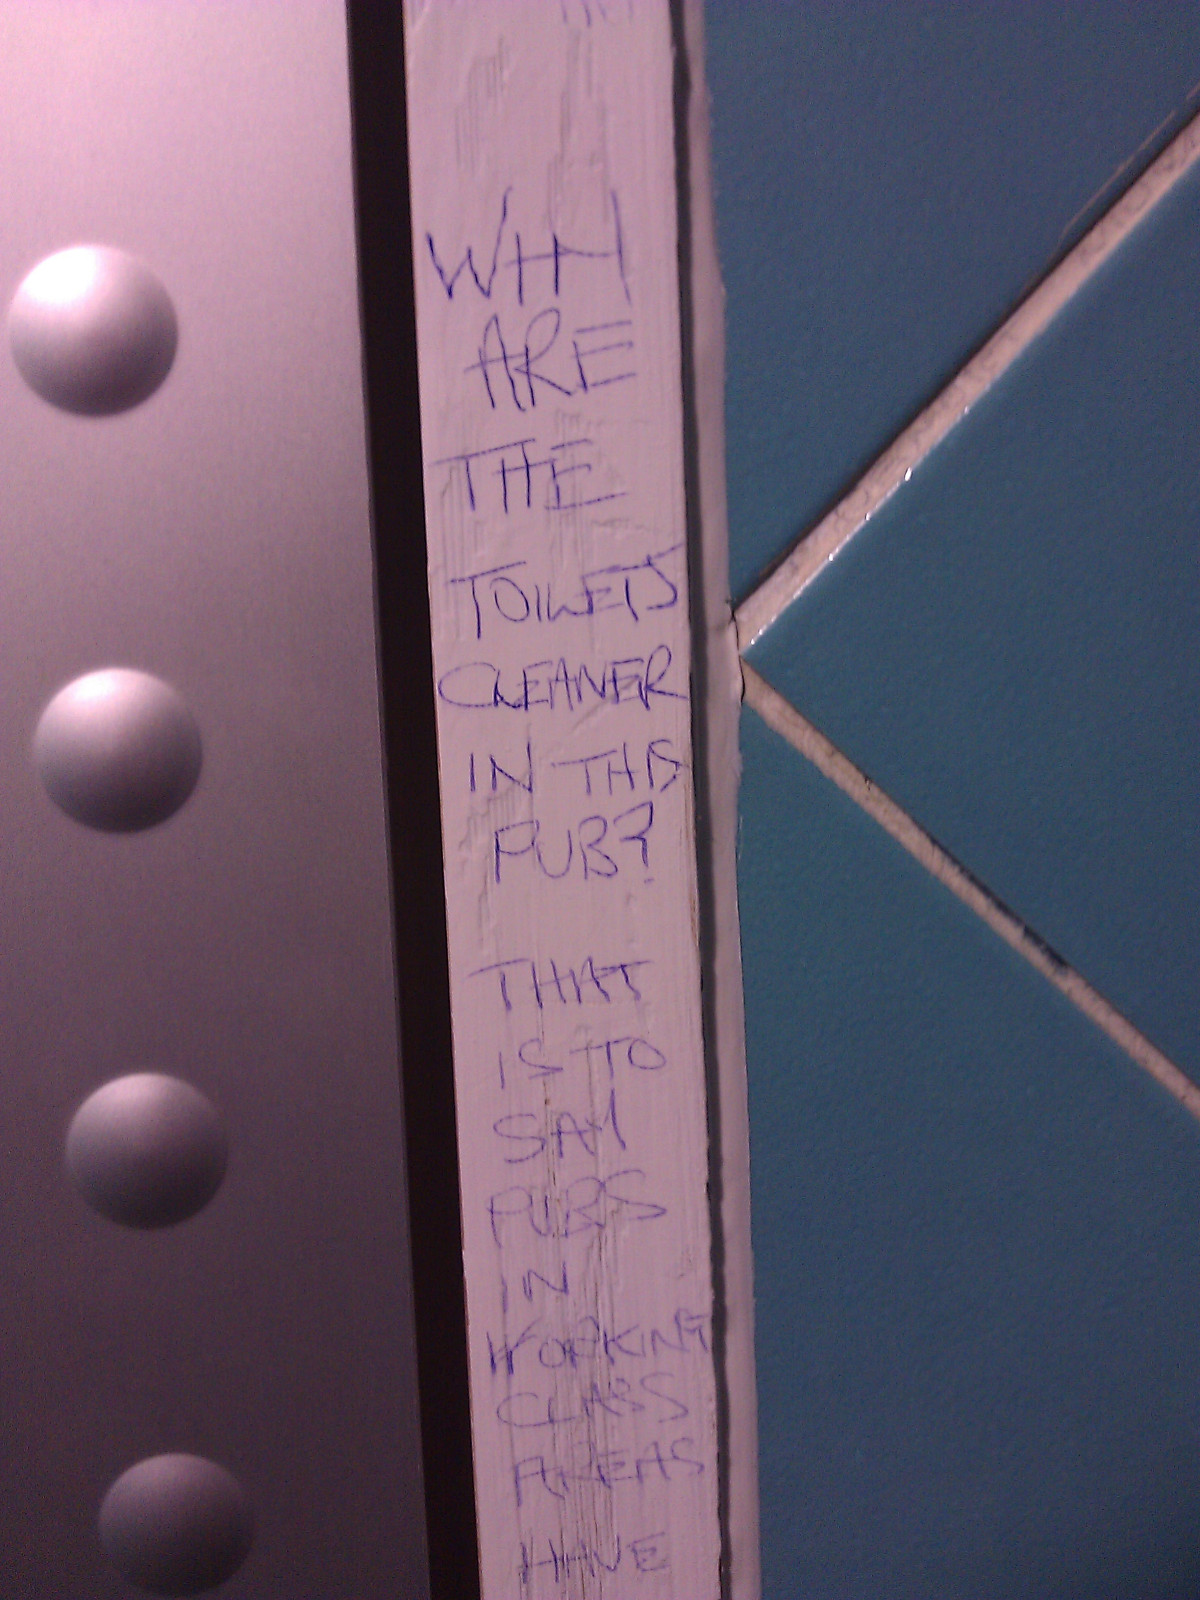 WHY
ARE
THE
TOILETS
CLEANER
IN THIS
PUB?
THAT
IS TO
SAY
PUBS
IN
WORKING
CLASS
AREAS
HAVE